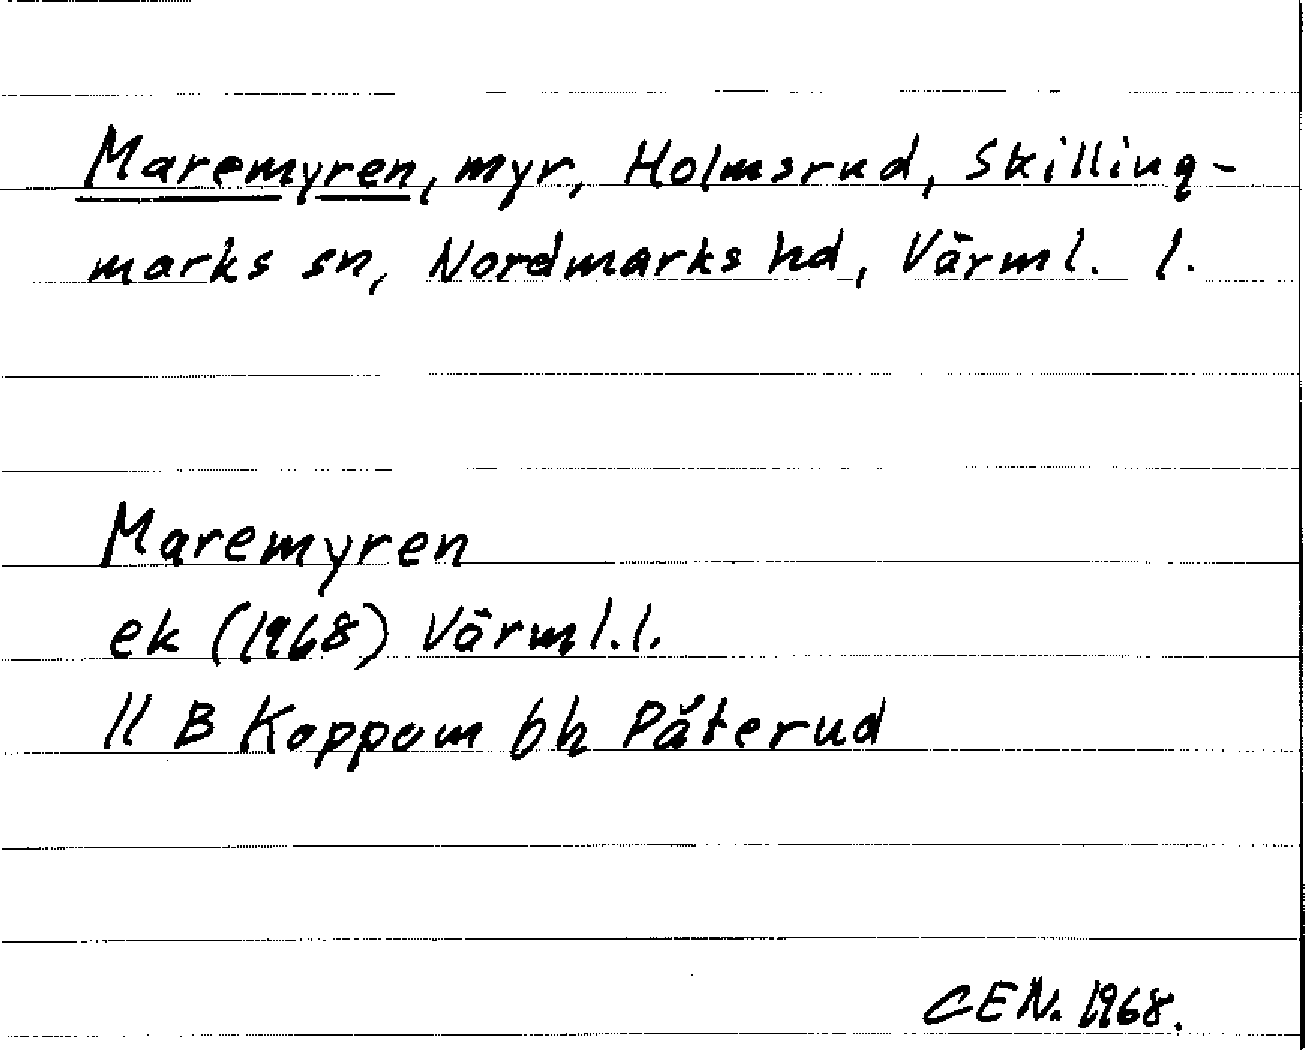 Maremyren, myr, Holmsrud, Skilling-
marks sn, Nordmarks hd, Värml. l.
Maremyren
ek (1968) Värml.l.
11 B Koppom bh Påterud
CEN. 1968.